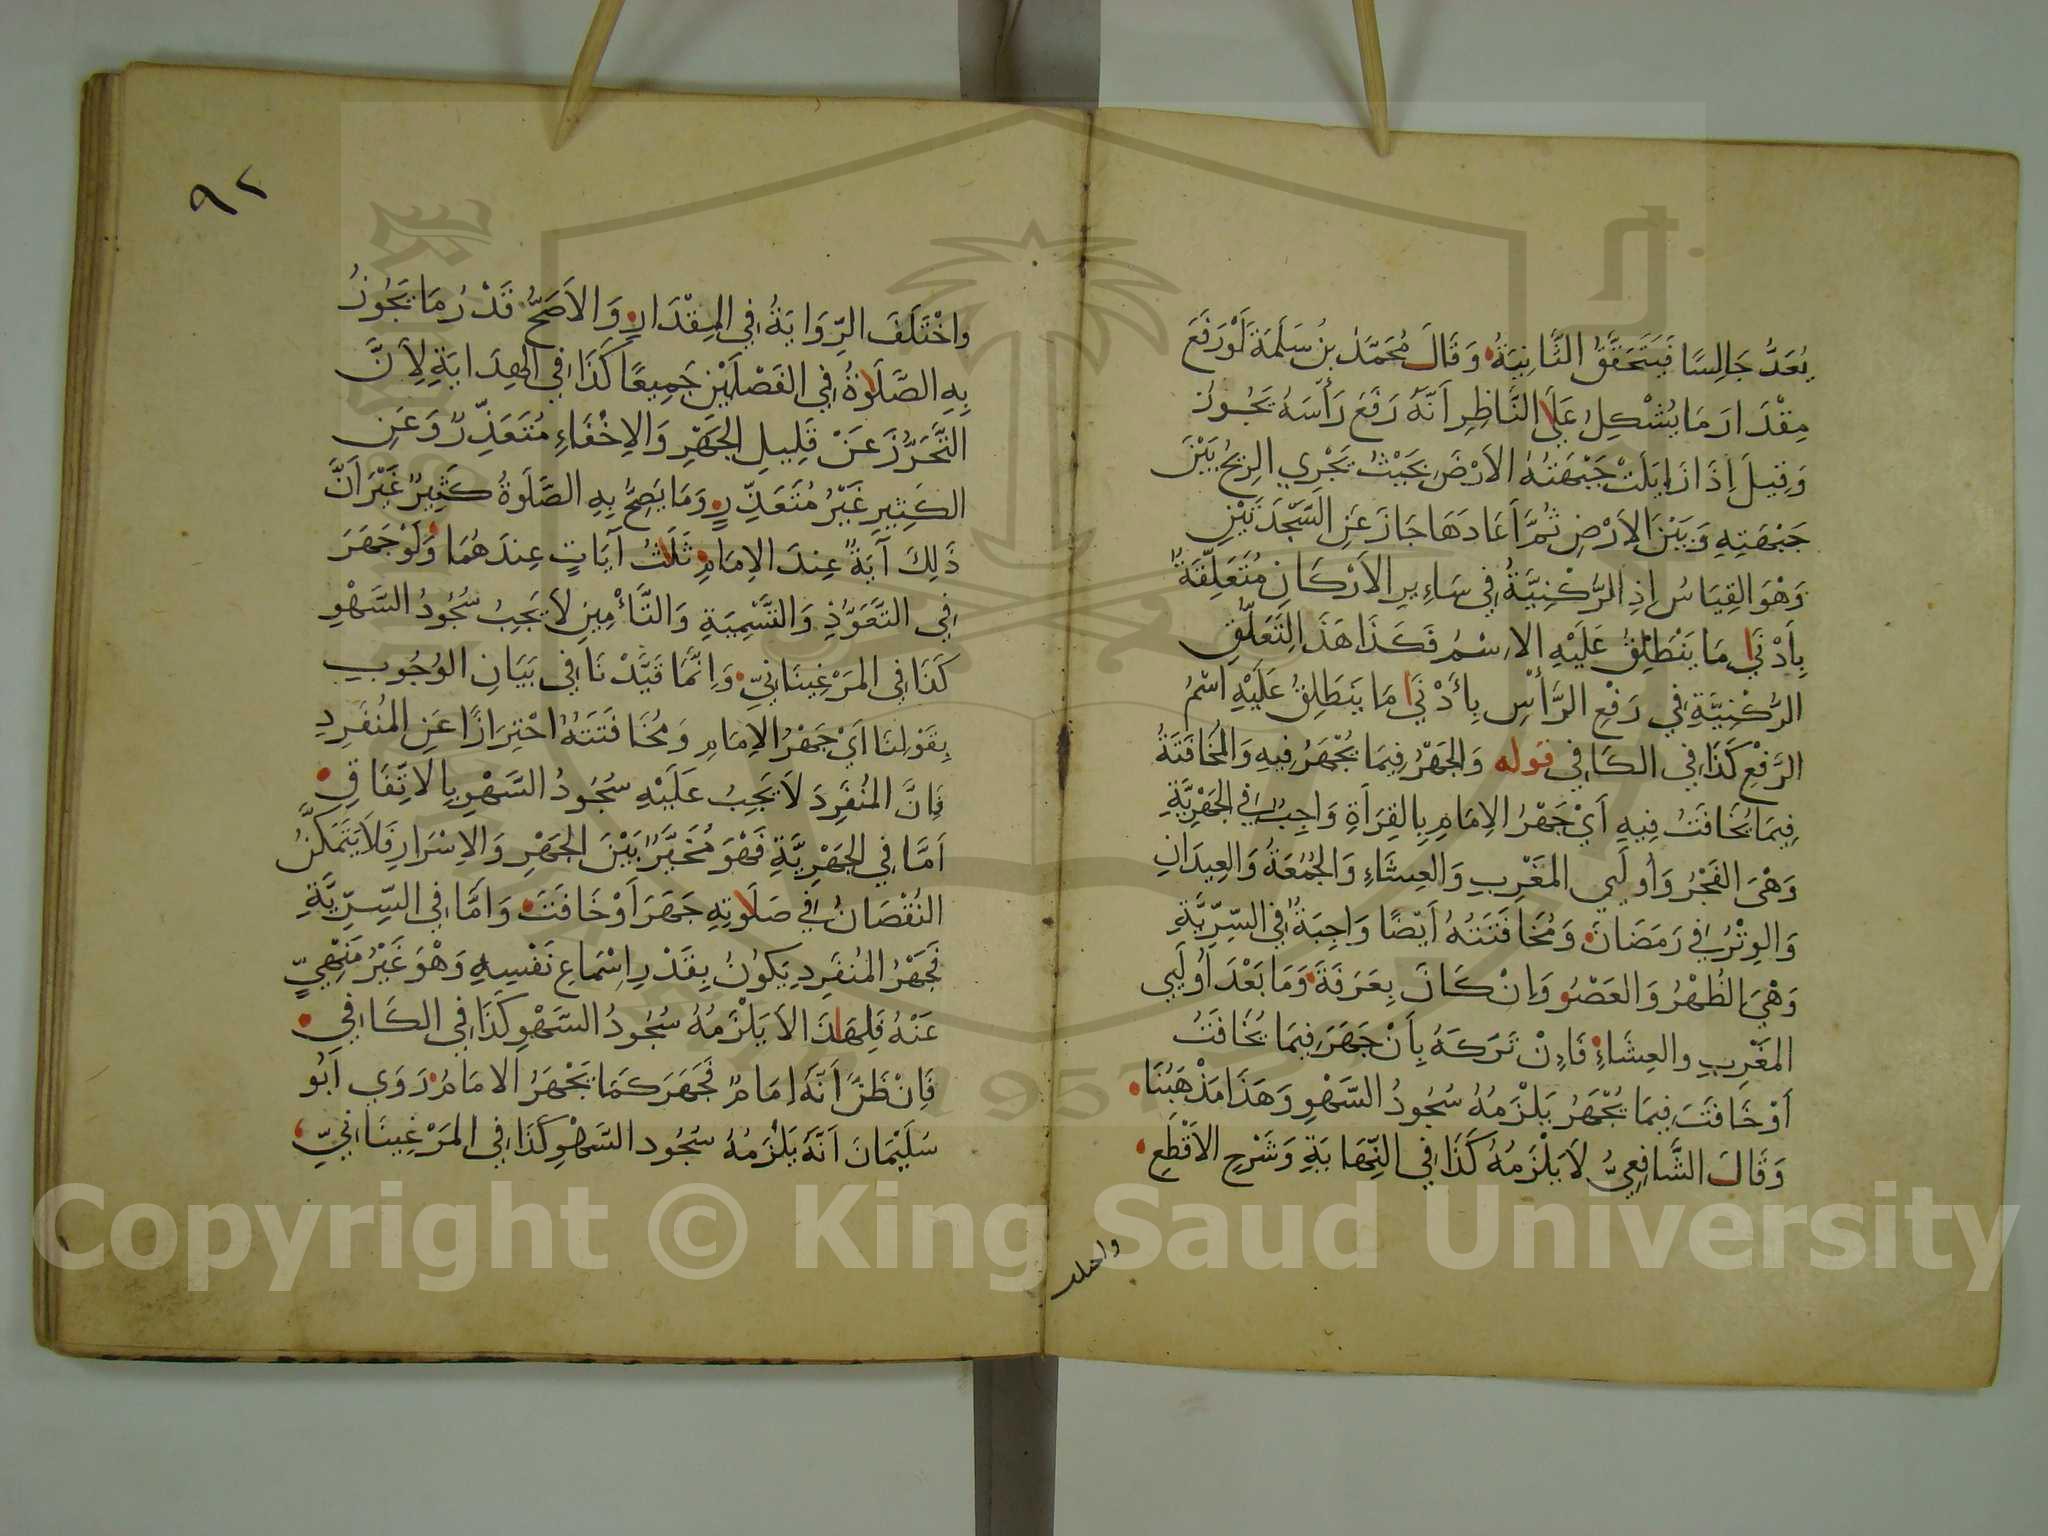 يُعَدُّ جَالِسًا فَيَتَحَقَّقُ الثَّانِيَةُ وَقَالَ مُحَمَّدُ بنُ سَلَمَةَ لَوْ رَفَعَ
مِقْدَارَ مَا يُشْكِلُ عَلَى النَّاظِرِ اَنَّهُ رَفَعَ رَأْسَهُ يَجُوزُ
وَقِيلَ اِذَا زَايَلَتْ جَبْهَتُهُ الاَرْضَ بِحَيْثُ يَجْرِي الرِيحُ بَيْنَ
جَبْهَتِهِ وَبَيْنَ الاَرْضِ ثُمَّ اَعَادَهَا جَازَ عَنِ السَّجْدَتَيْنِ
وَهْوَ القِيَاسُ اِذِ الرُّكْنِيَّةُ فِي سَاءِيرِ الاَرْكَانِ مُتَعَلِّقَةٌ
بِاَدْنَى مَا يَنْطَلِقُ عَلَيْهِ الاِسْمُ فَكَذَا هَذَ التَعَلُّقِ
الرُّكْنِيَّةِ فِي رَفْعِ الرَّأْسِ بِأَدْنَى مَا يَنطَلِقُ عَلَيْهِ اسْمُ
الرَّفْعِ كَذَا فِي الكَافِي قوله وَالجَهْرُ فِيمَا يُجْهَرُ فِيهِ وَالمُخَافَتَةُ
فِيمَا يُخَافَتُ فِيهِ اَيْ جَهْرُ الاِمَامِ بِالقِرَأةِ وَاجِبٌ فِي الجَهْرِيَّةِ
وَهْيَ الفَجْرُ وَاُولَيي المَغْرِبِ وَالعِشَاءِ وَالجُمُعَةُ وَالعِيدَانِ
وَالوِتْرُ فِي رَمَضَانَ وَمُخَافَتَتُهُ أَيْضًا وَاجِبَةٌ فِي السِّرِّيَّةِ
وَهْيَ الظُهْرُ وَالعَصْرُ وَاِنْ كَانَ بِعَرَفَةَ وَمَا بَعْدَ اُولَيي
المَغْرِبِ والعِشَاءِ فَاِنْ تَرَكَهُ بِاَنْ جَهَرَ فِيمَا يُخَافَتُ
اَوْ خَافَتَ فِيمَا يُجْهَرُ يَلْزَمُهُ سُجُودُ السَّهْوِ وَهَذَا مَذْهَبُنَا
وَقَالَ الشَّافِعِيُّ لاَ يَلْزَمُهُ كَذَا فِي النِّهَايَةِ وَشَرْحِ الاَقْطَعِ
واختلف
٩٢
وَاخْتَلَفَ الرِّوَايَةُ فِي المِقْدَارِ وَالاَصَحُّ قَدْرُ مَا يَجُوزُ
بِهِ الصَّلَوةُ فِي الفَصْلَيْنِ جَمِيعًا كَذَا فِي الهِدَايَةِ لِاَنَّ
التَّحَرُّزَ عَنْ قَلِيلِ الجَهْرِ وَالاِخْفَاءِ مُتَعَذِّرٌ وَعَنِ
الكَثِيرِ غَيْرُ مُتَعَذِّرٍ وَمَا يَصِحُّ بِهِ الصَّلَوةُ كَثِيرٌ غَيْرَ اَنَّ
ذَلِكَ آيَةٌ عِندَ الاِمَامِ ثَلَثُ آيَاتٍ عِندَهُمَا وَلَوْ جَهَرَ
فِي التَّعَوُّذِ وَالتَّسْمِيَةِ وَالتَّأْمِينِ لاَ يَجِبُ سُجُودُ السَّهْوِ
كَذَا فِي المَرْغِينَانِيِّ وَاِنَّمَا قَيَّدْنَا فِي بَيَانِ الوُجُوبِ
بِقَوْلِنَا اَيْ جَهْرُ الاِمَامِ وَمُخَافَتَتُهُ احْتِرَازًا عَنِ المُنْفَرِدِ
فَاِنَّ المُنْفَرِدَ لاَ يَجِبُ عَلَيْهِ سُجُودُ السَّهْوِ بِالاِتِّفَاقِ
اَمَّا فِي الجَهْرِيَّةِ فَهْوَ مُخَيَّرٌ بَيْنَ الجَهْرِ وَالاِسْرَارِ فَلاَ يَتَمَكَّنُ
النُقْصَانُ فِي صَلَوتِهِ جَهَرَ اَوْ خَافَتَ وَاَمَّا فِي السِّرِّيَّةِ
فَجَهْرُ المُنفَرِدِ يَكُونُ بِقَدْرِ اِسْمَاعِ نَفْسِهِ وَهْوَ غَيْرُ مَنْهِيٍّ
عَنْهُ فَلِهَذَا لاَ يَلْزَمُهُ سُجُودُ السَّهْوِ كَذَا فِي الكَافِي
فَاِنْ ظَنَّ اَنَّهُ اِمَامٌ فَجَهَرَ كَمَا يَجْهَرُ الاِمَامُ رَوَي اَبُو
سُلَيْمَانَ اَنَّهُ يَلْزَمُهُ سُجُود السَّهْوِ كَذَا فِي المَرْغِينَانِيِّ
1957
Copyright © King Saud University